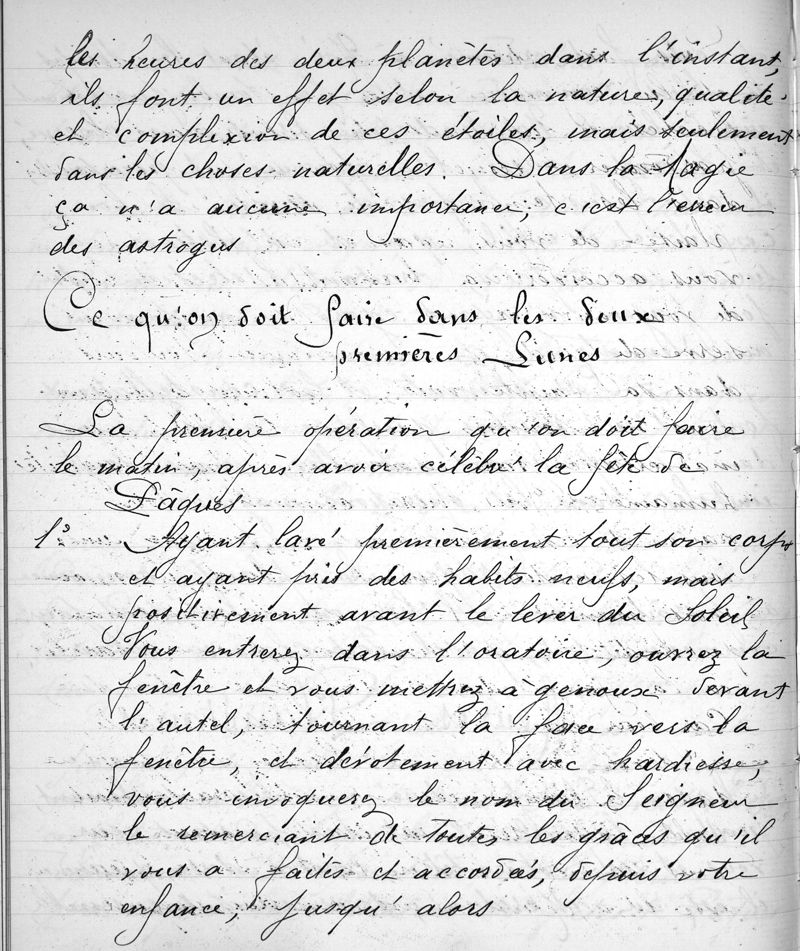 les heures des deux planètes dans l'instant,
ils font un effet selon la nature, qualité
et complexion de ces étoiles, mais seulement
dans les choses naturelles. Dans la Magie
ça n'a aucune importance, c'est l'erreur
des astrogus
Ce qu'on doit faire dans les deux
premières Lunes
La première opération qu'on doit faire
le matin, après avoir célébré la fête de
Pâques
1° Ayant lavé premièrement tout son corps
et ayant pris des habits neufs, mais
positivement avant le lever du Soleil
Vous entrerez dans l'oratoire, ouvrez la
fenêtre et vous mettrez à genoux devant
l'autel, tournant la face vers la
fenêtre, et dévotement avec hardiesse,
vous invoquerez le nom du Seigneur
le remerciant de toutes les grâces qu'il
vous a faites et accordées, depuis votre
enfance, jusqu'alors